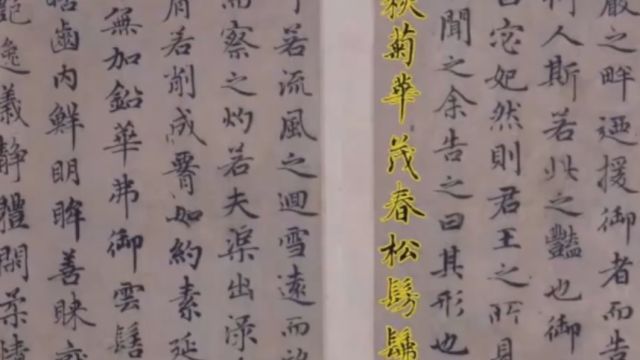 嚴之畔迺援御者而告
人斯若此之豔也御
宓妃然則君王之所見
聞之余告之曰其形也
秋菊華茂春松髣髴
若流風之迴雪遠而
而察之灼若夫渠出淥
肩若削成腰如約素延
無加鉛華弗御雲髻
齒內鮮明眸善睞
逸義靜體閑柔情